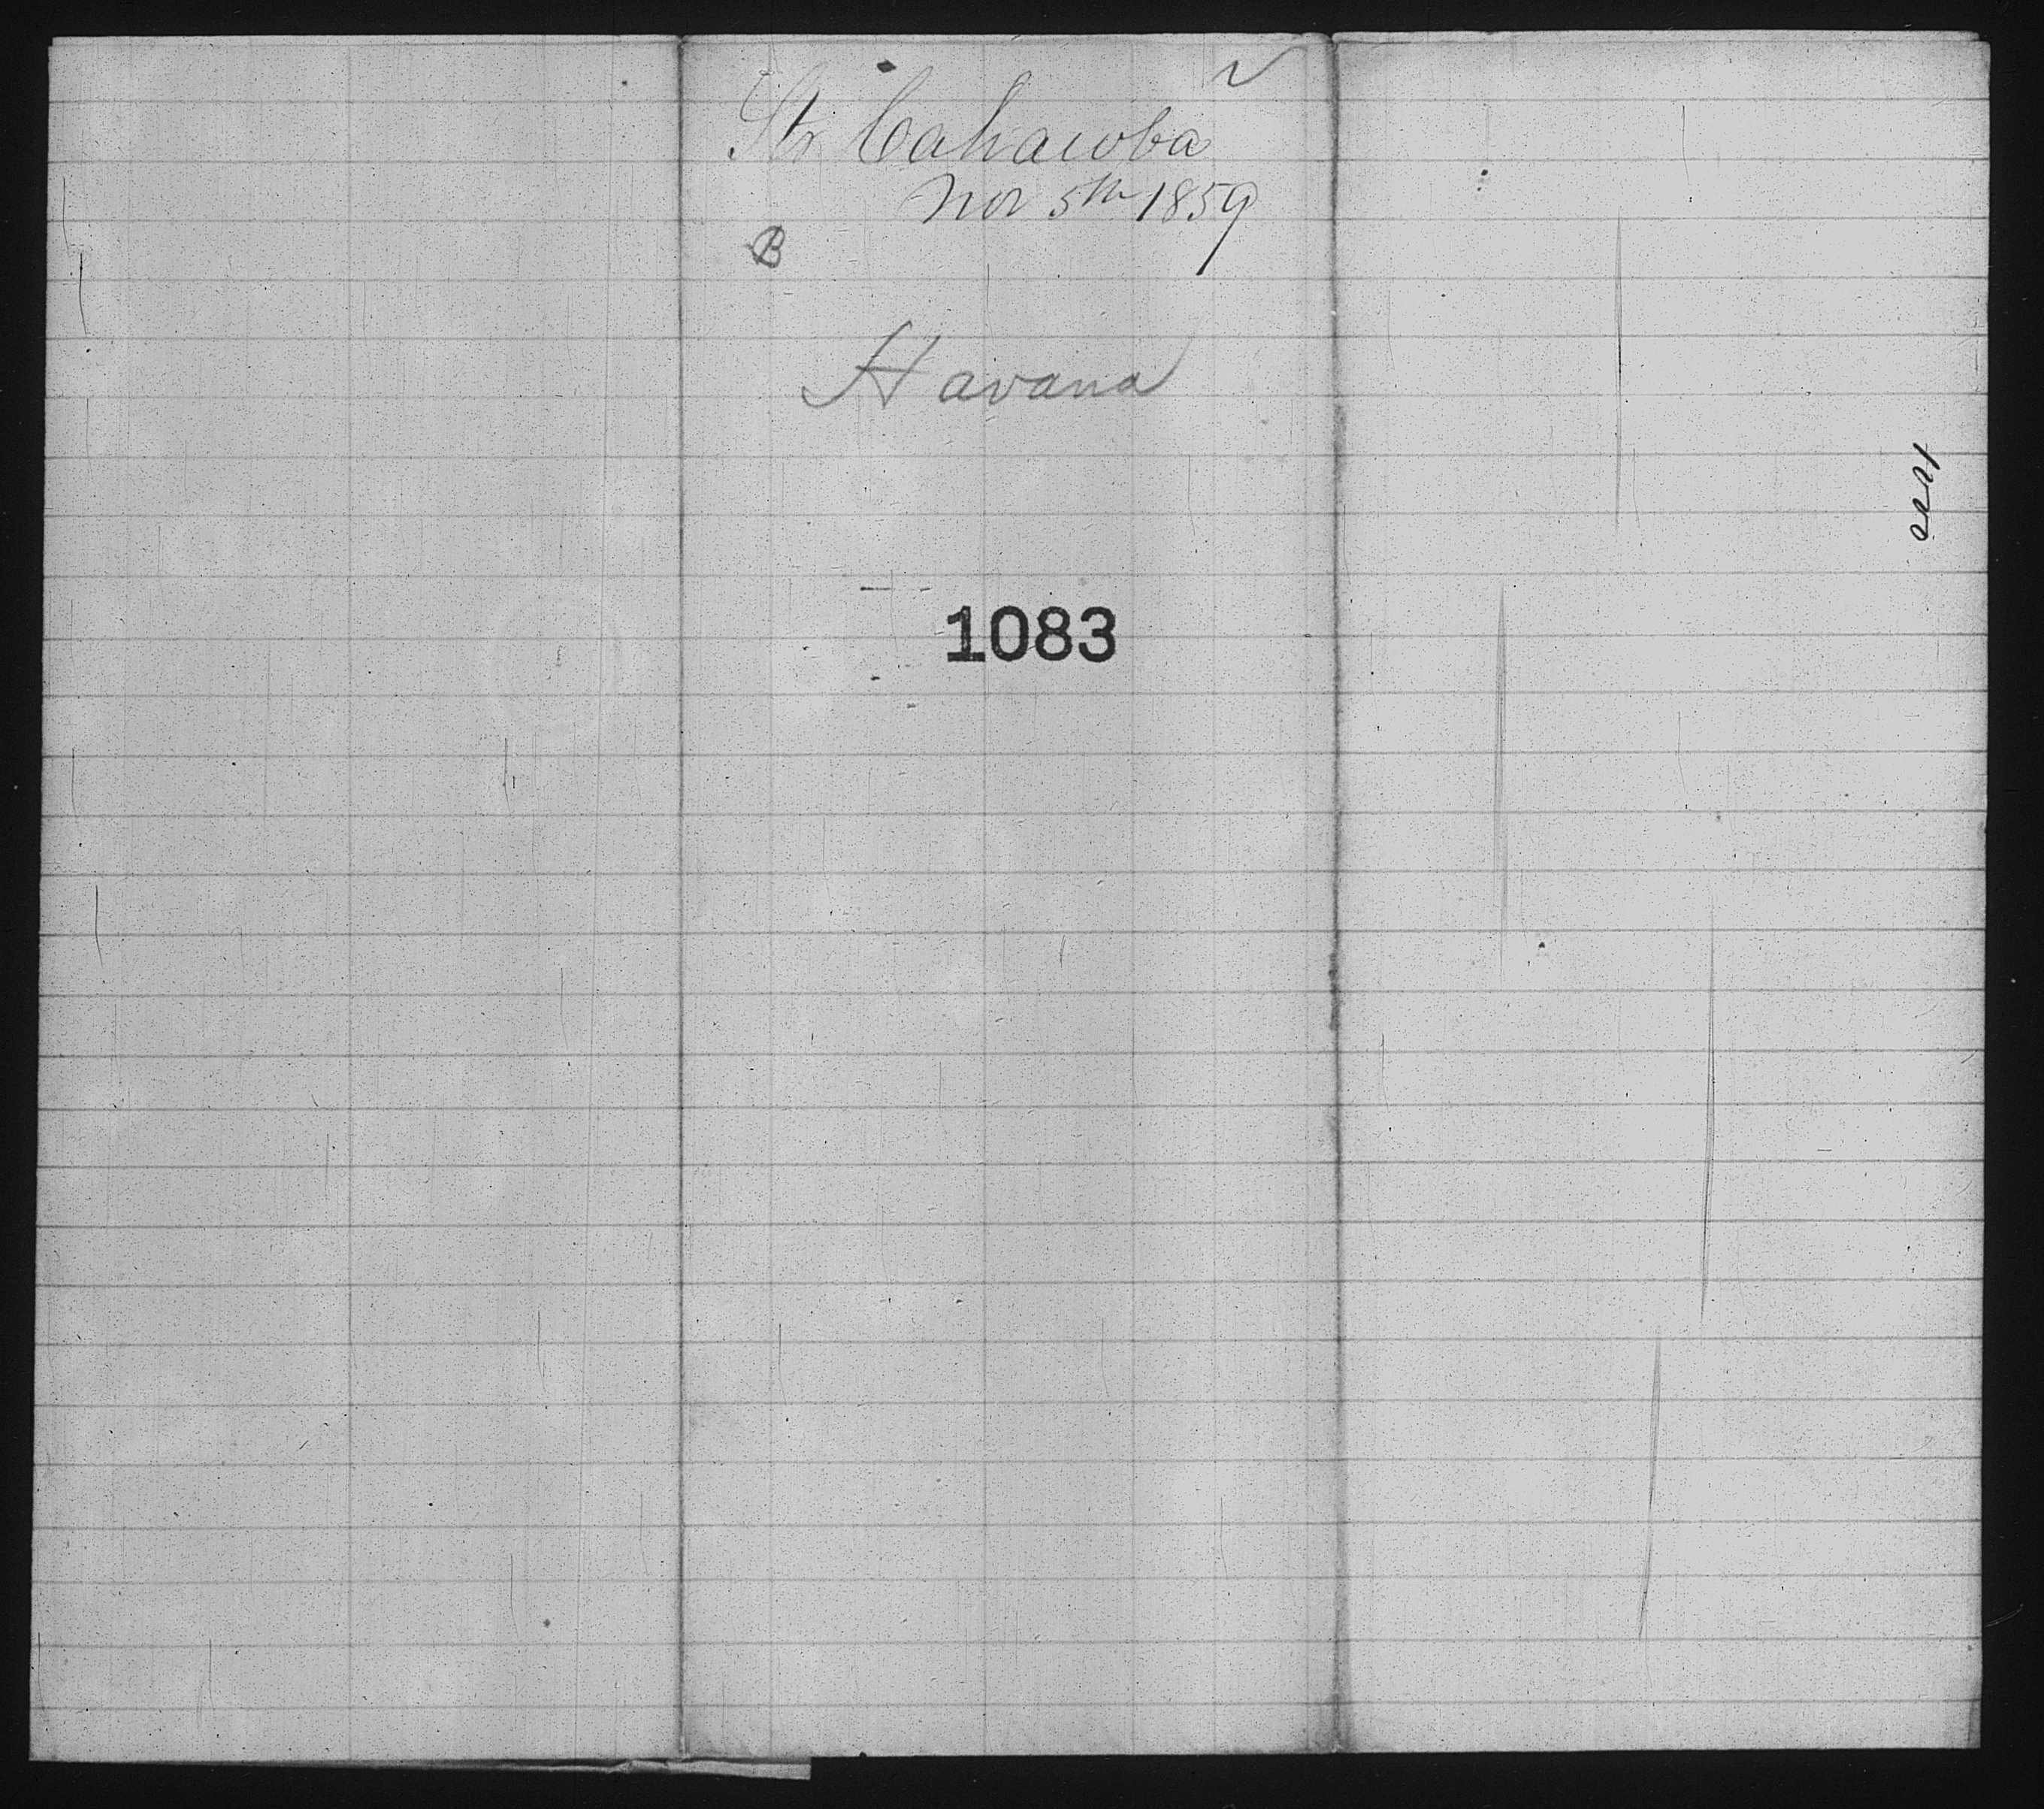 Str Cahawba
Nov 5th 1859
B
Havana
1083